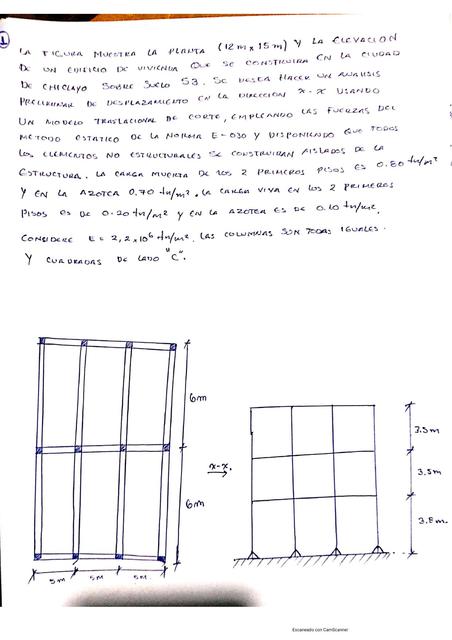 1
LA FIGURA MUESTRA LA PLANTA (12m x 15m) Y LA ELEVACION
DE UN EDIFICIO DE VIVIENDA QUE SE CONSTRUIRA EN LA CIUDAD
DE CHICLAYO SOBRE SUELO S3. SE DESEA HACER UN ANALISIS
PRELIMINAR DE DESPLAZAMIENTO EN LA DIRECCION X-X USANDO
UN MODELO TRASLACIONAL DE CORTE, EMPLEANDO LAS FUERZAS DEL
METODO ESTATICO DE LA NORMA E-030 Y DISPONIENDO QUE TODOS
LOS ELEMENTOS NO ESTRUCTURALES SE CONSTRUIRAN AISLADOS DE LA
ESTRUCTURA. LA CARGA MUERTA DE LOS 2 PRIMEROS PISOS ES 0.80 tn/m²
Y EN LA AZOTEA 0.70 tn/m². LA CARGA VIVA EN LOS 2 PRIMEROS
PISOS ES DE 0.20 tn/m² Y EN LA AZOTEA ES DE 0.10 tn/m².
CONSIDERE E = 2,2 x 10⁶ tn/m². LAS COLUMNAS SON TODAS IGUALES.
Y CUADRADAS DE LADO "C".
6m
6m
x-x.
5m 5m 5m.
3.5m
3.5m
3.8m.
Escaneado con CamScanner